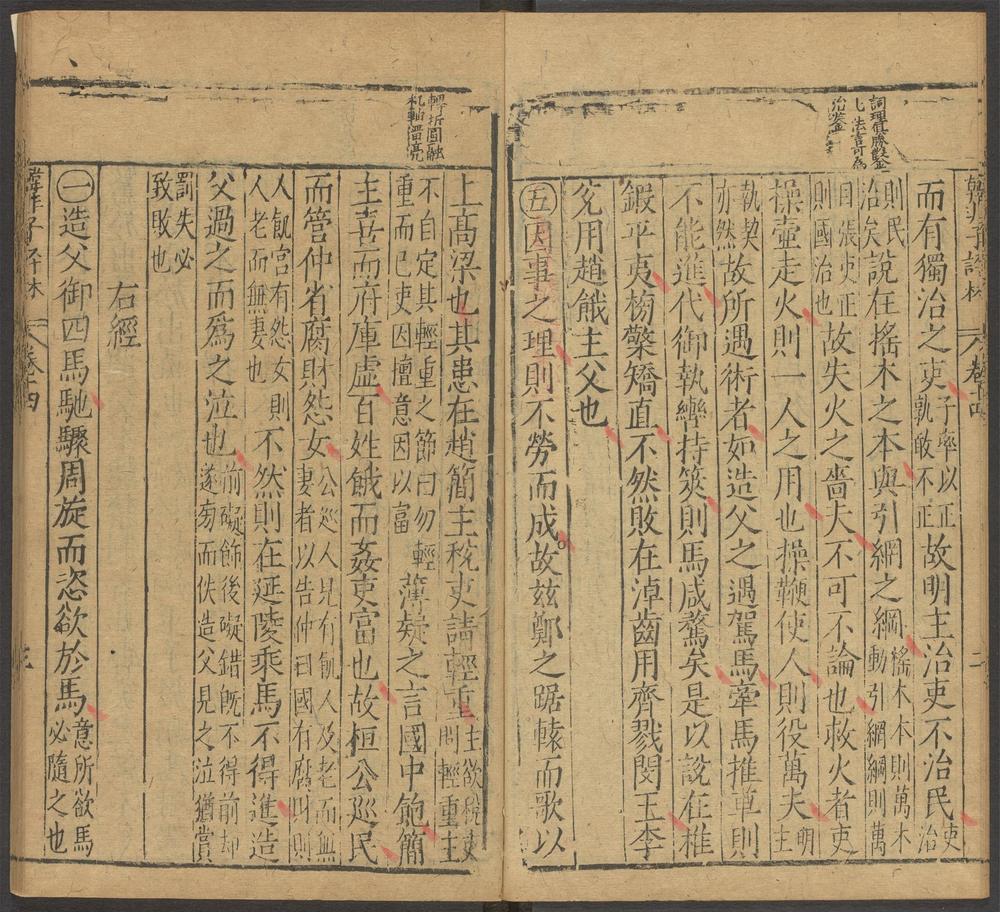 詞理俱勝
治鑒
而有獨治之吏子率以正孰敢不正故明主治吏不治民吏治
則民治矣說在搖木之本與引網之綱搖木本則萬木動引網綱則萬
目張吏正則國治也故失火之嗇夫不可不論也救火者吏
操壺走火則一人之用也操鞭使人則役萬夫明主
執契亦然故所遇術者如造父之遇駕馬牽馬推車則
不能進代御執轡持筴則馬咸騖矣是以說在椎
鍛平夷榜檠矯直不然敗在淖齒用齊戮閔王李
兌用趙餓主父也
㊄因事之理則不勞而成故茲鄭之踞轅而歌以
轉折圓融
机軸溜亮
上高梁也其患在趙簡主稅吏請輕重主欲稅吏問輕重主
不自定其輕重之節曰勿輕重而已吏因擅意因以富薄疑之言國中飽簡
主喜而府庫虛百姓餓而姦吏富也故桓公巡民
而管仲省腐財怨女公巡人見有飢人及老而無妻者以告仲曰國有腐則
人飢宮有怨女則人老而無妻也不然則在延陵乘馬不得進造
父過之而為之泣也前礙飾後礙錯既不得前却遂旁而佚造父見之泣猶賞
罰失必致敗也
右經
㊀造父御四馬馳驟周旋而恣欲於馬意所欲馬必隨之也